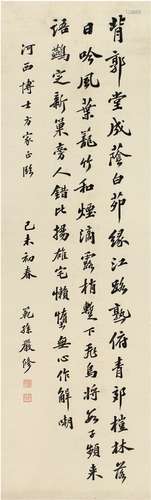 背郭堂成蔭白茆緣江路熟俯青郊榿林礙
日吟風葉籠竹和煙滴露梢暫下飛烏將數子頻來
語鷰定新巢旁人錯比揚雄宅懶惰無心作解嘲
河西博士方家正 己未初春
範孫嚴修